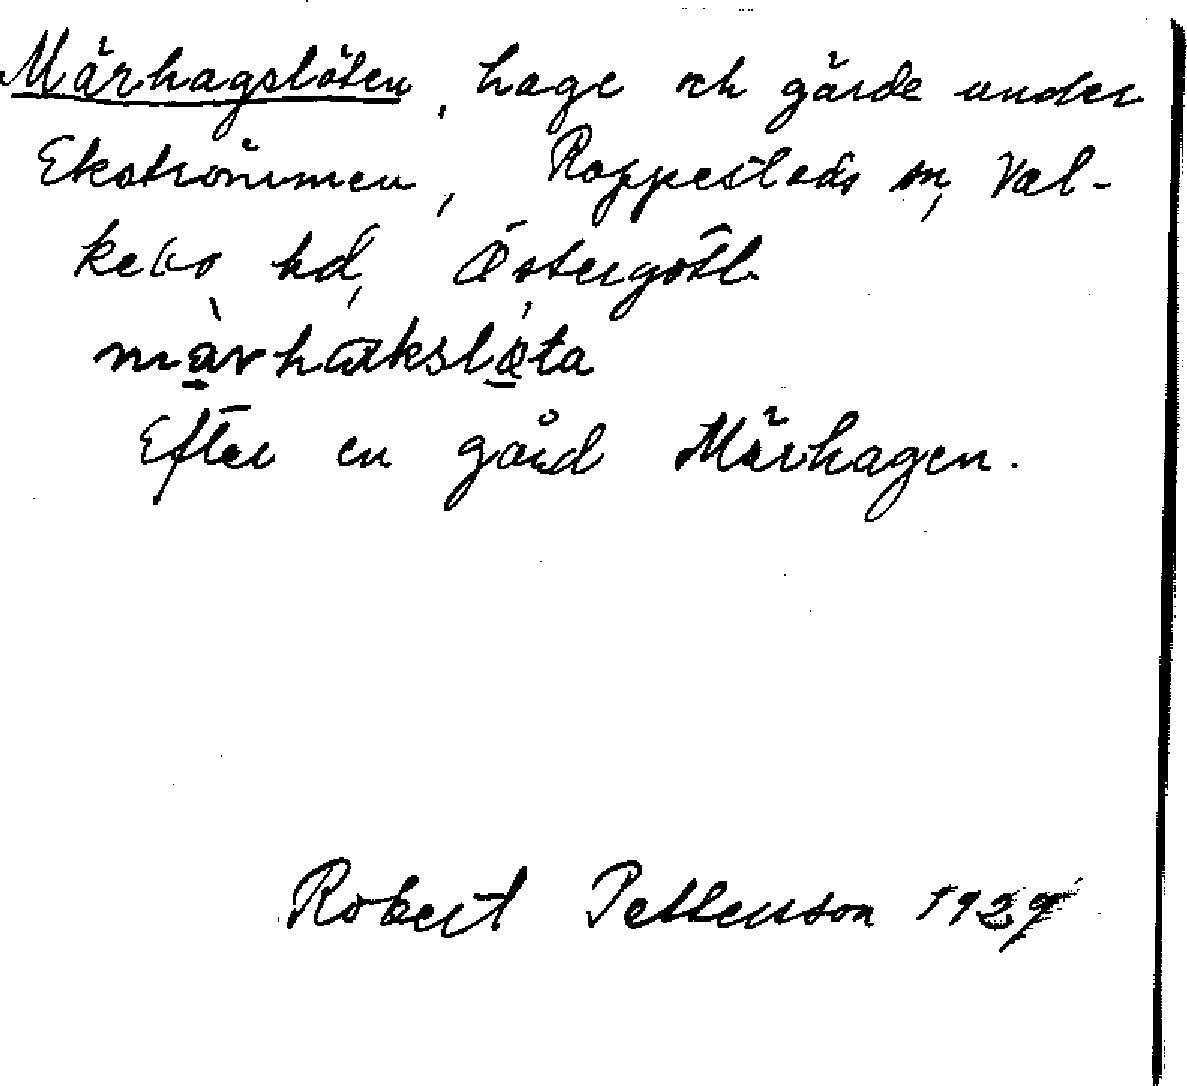 Märhagslöten, hage och gärde under
Ekströmmen, Rappestads sn, Val-
kebo hd, Östergötl.
Efter en gård Märhagen.
Robert Petterson